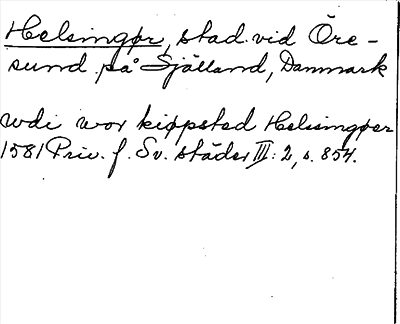 Helsingør, stad vid Öre-
sund på Själland, Danmark
wdi wor kiøpsted Helsingøer
1581 Priv. f. Sv. städer III: 2, s. 854.